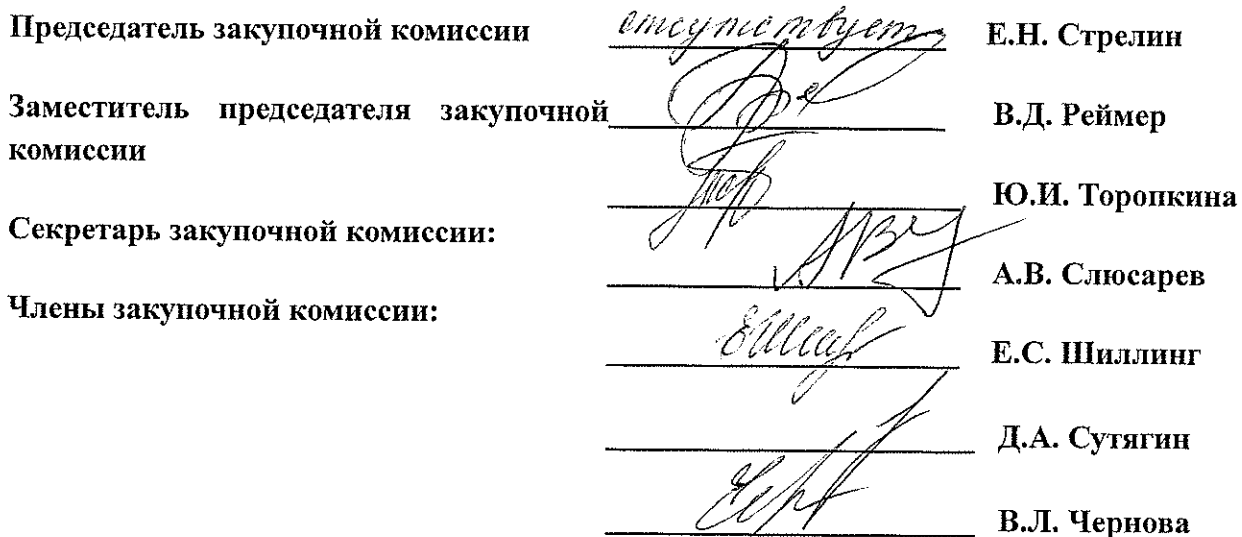 Председатель закупочной комиссии отсутствует Е.Н. Стрелин
Заместитель председателя закупочной В.Д. Реймер
комиссии
Ю.И. Торопкина
Секретарь закупочной комиссии:
А.В. Слюсарев
Члены закупочной комиссии:
Е.С. Шиллинг
Д.А. Сутягин
В.Л. Чернова